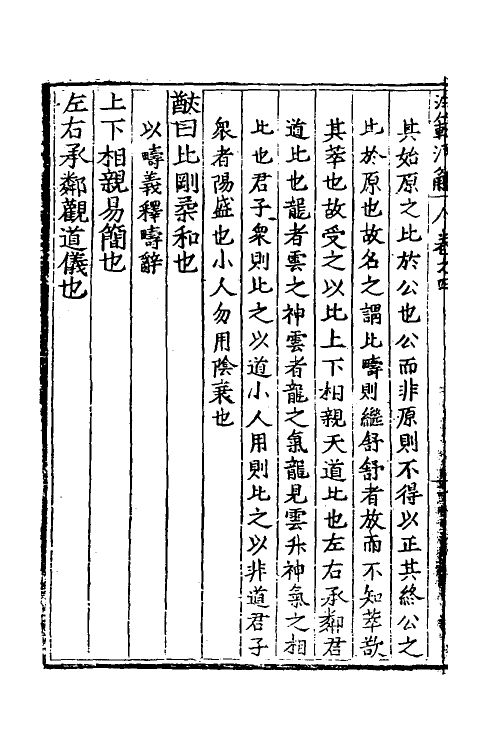 其始原之比於公也公而非原則不得以正其終公之
比於原也故名之謂比疇則繼舒舒者放而不知萃歆
其萃也故受之以比上下相親天道比也左右承鄰君
道比也龍者雲之神雲者龍之氣龍見雲升神氣之相
比也君子衆則比之以道小人用則比之以非道君子
衆者陽盛也小人勿用陰衰也
猷曰比剛柔和也
以疇義釋疇辭
上下相親易簡也
左右承鄰觀道儀也